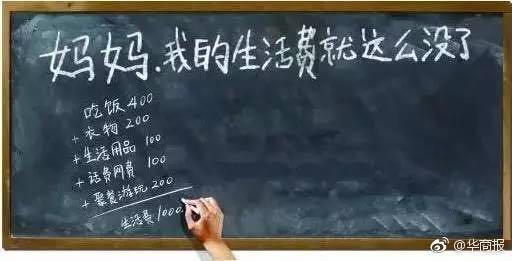 妈妈.我的生活费就这么没了
吃饭400
+衣物200
+生活用品100
+话费网费100
+聚餐游玩200
生活费1000
@华商报